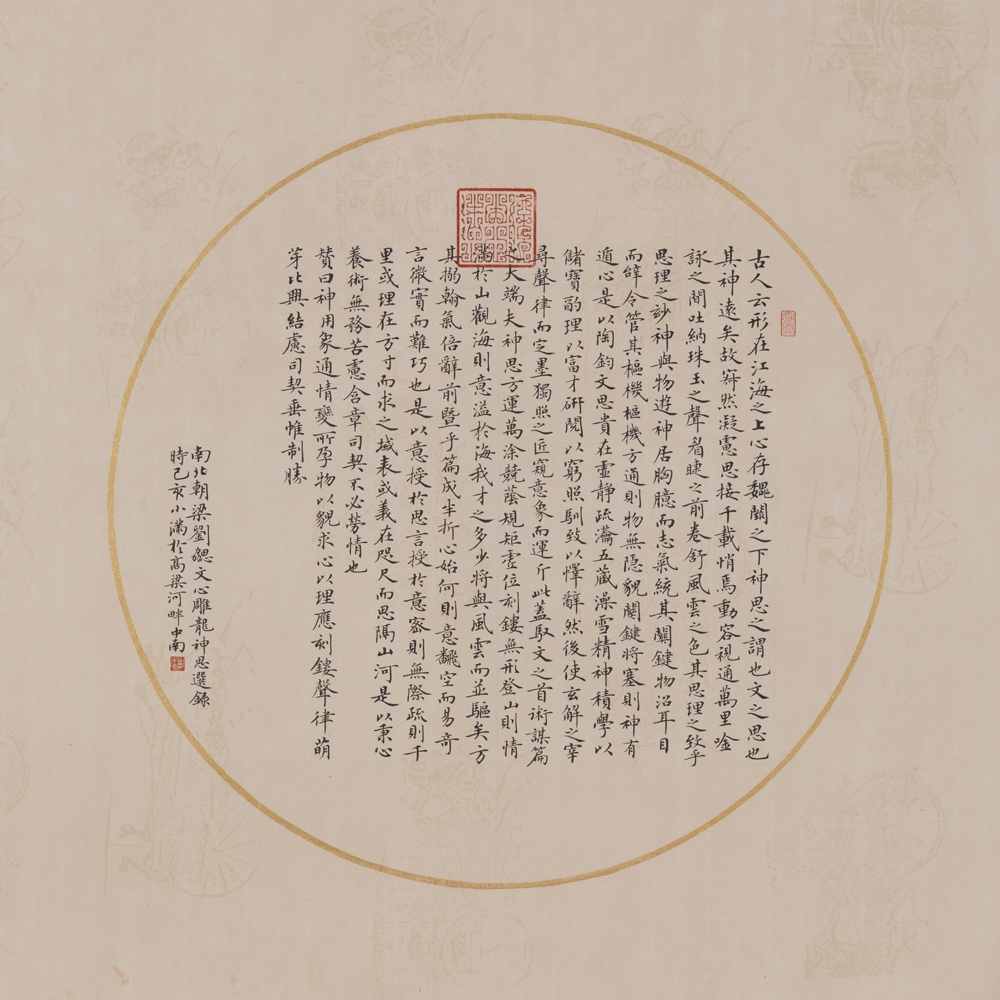 古人云形在江海之上心存魏闕之下神思之謂也文之思也
其神遠矣故寂然凝慮思接千載悄焉動容視通萬里唫
詠之間吐納珠玉之聲眉睫之前卷舒風雲之色其思理之致乎
思理之妙神與物遊神居胸臆而志氣統其關鍵物沿耳目
而辭令管其樞機樞機方通則物無隱貌關鍵將塞則神有
遁心是以陶鈞文思貴在虛靜疏瀹五藏澡雪精神積學以
儲寶酌理以富才研閱以窮照馴致以懌辭然後使玄解之宰
尋聲律而定墨獨照之匠窺意象而運斤此蓋馭文之首術謀篇
之大端夫神思方運萬涂競蔭規矩虛位刻鏤無形登山則情
滿於山觀海則意溢於海我才之多少將與風雲而並驅矣方
其搦翰氣倍辭前暨乎篇成半折心始何則意翻空而易奇
言徵實而難巧也是以意授於思言授於意密則無際疏則千
里或理在方寸而求之域表或義在咫尺而思隔山河是以秉心
養術無務苦慮含章司契不必勞情也
贊曰神用象通情變所孕物以貌求心以理應刻鏤聲律萌
芽比興結慮司契垂帷制勝
南北朝梁劉勰文心雕龍神思選錄
時己亥小滿於高梁河畔中南